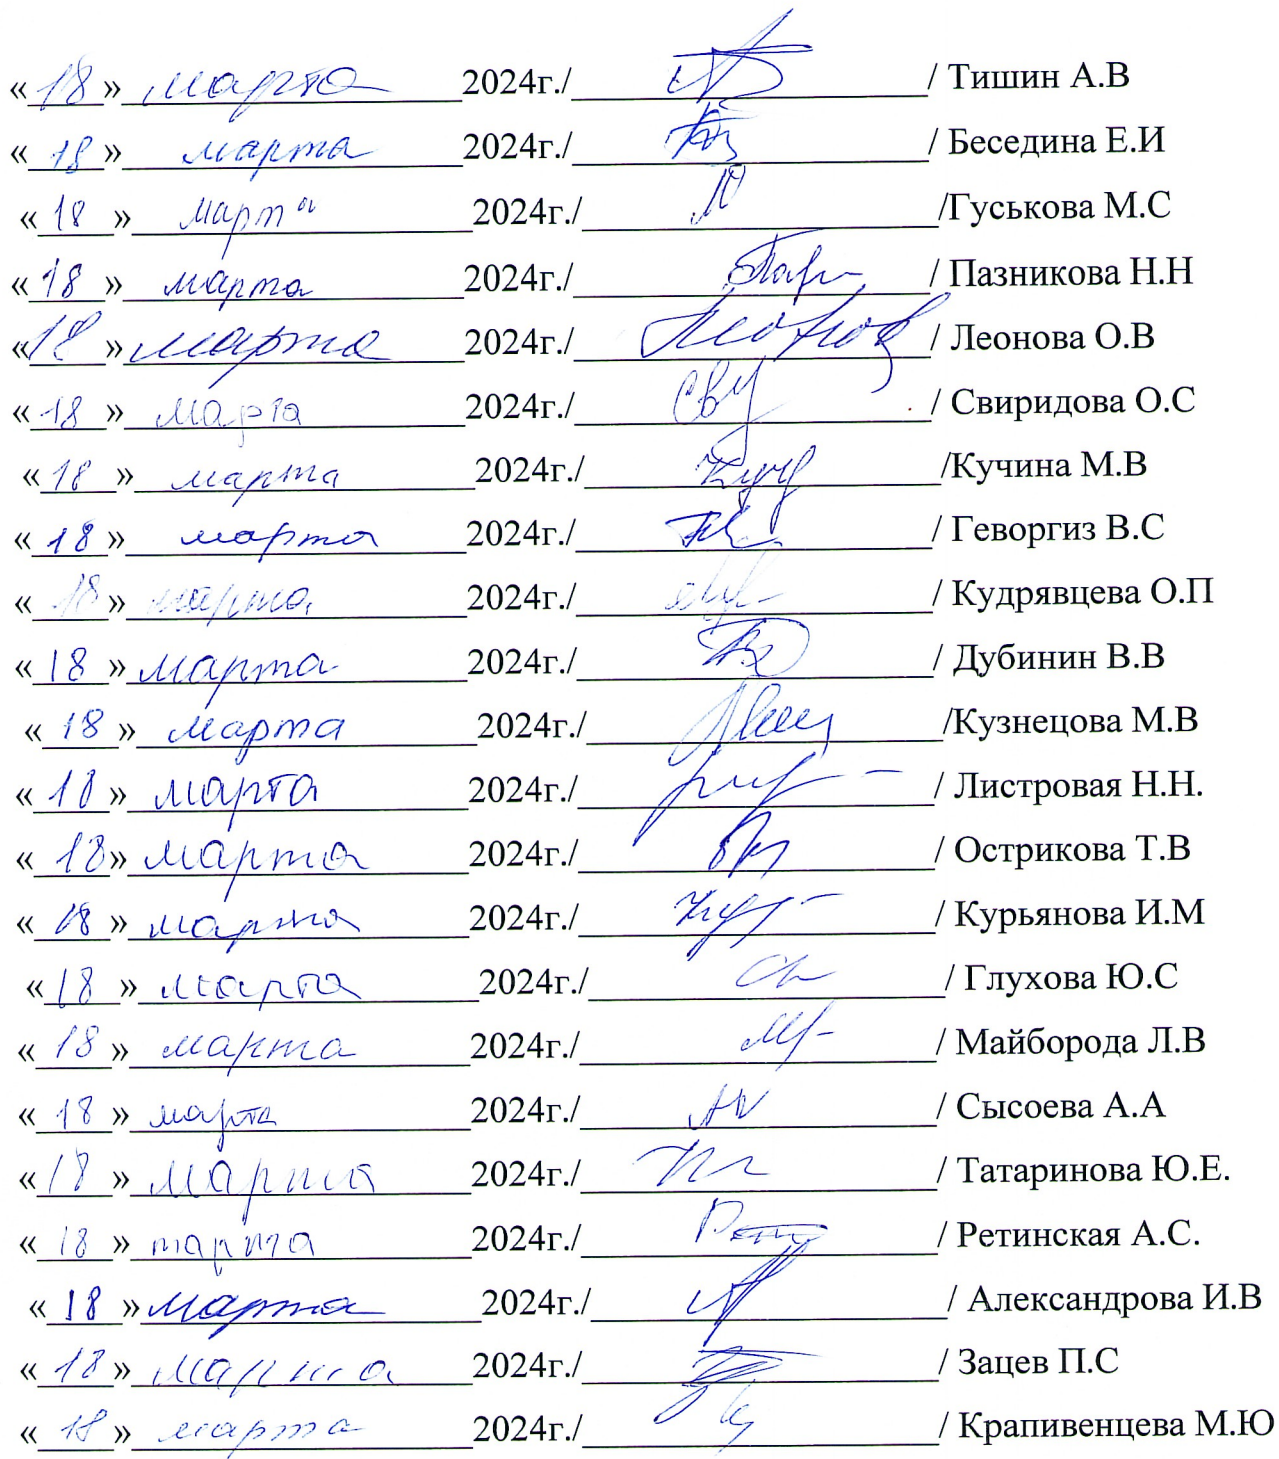 «18» марта 2024г./ / Тишин А.В
«18» марта 2024г./ / Беседина Е.И
«18» марта 2024г./ /Гуськова М.С
«18» марта 2024г./ / Пазникова Н.Н
«18» марта 2024г./ / Леонова О.В
«18» марта 2024г./ / Свиридова О.С
«18» марта 2024г./ /Кучина М.В
«18» марта 2024г./ / Геворгиз В.С
«18» марта 2024г./ / Кудрявцева О.П
«18» марта 2024г./ / Дубинин В.В
«18» марта 2024г./ /Кузнецова М.В
«18» марта 2024г./ / Листровая Н.Н.
«18» марта 2024г./ / Острикова Т.В
«18» марта 2024г./ / Курьянова И.М
«18» марта 2024г./ / Глухова Ю.С
«18» марта 2024г./ / Майборода Л.В
«18» марта 2024г./ / Сысоева А.А
«18» марта 2024г./ / Татаринова Ю.Е.
«18» марта 2024г./ / Ретинская А.С.
«18» марта 2024г./ / Александрова И.В
«18» марта 2024г./ / Зацев П.С
«18» марта 2024г./ / Крапивенцева М.Ю